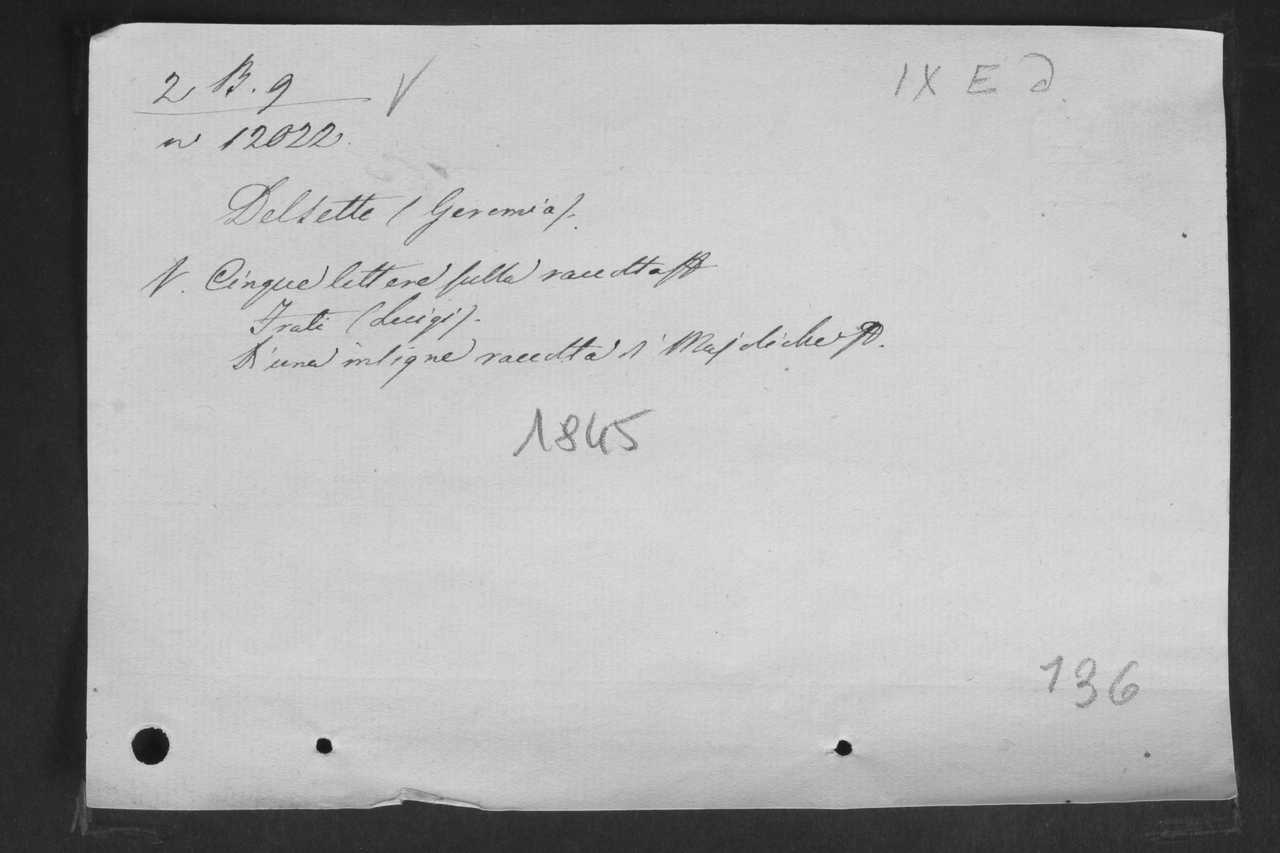 2 B. 9 V
IX E d
n 12022.
Delsette (Geremia).
V. Cinque lettere sulla raccolta
Frati (Luigi).
D'una insigne raccolta di Majoliche
1845
136